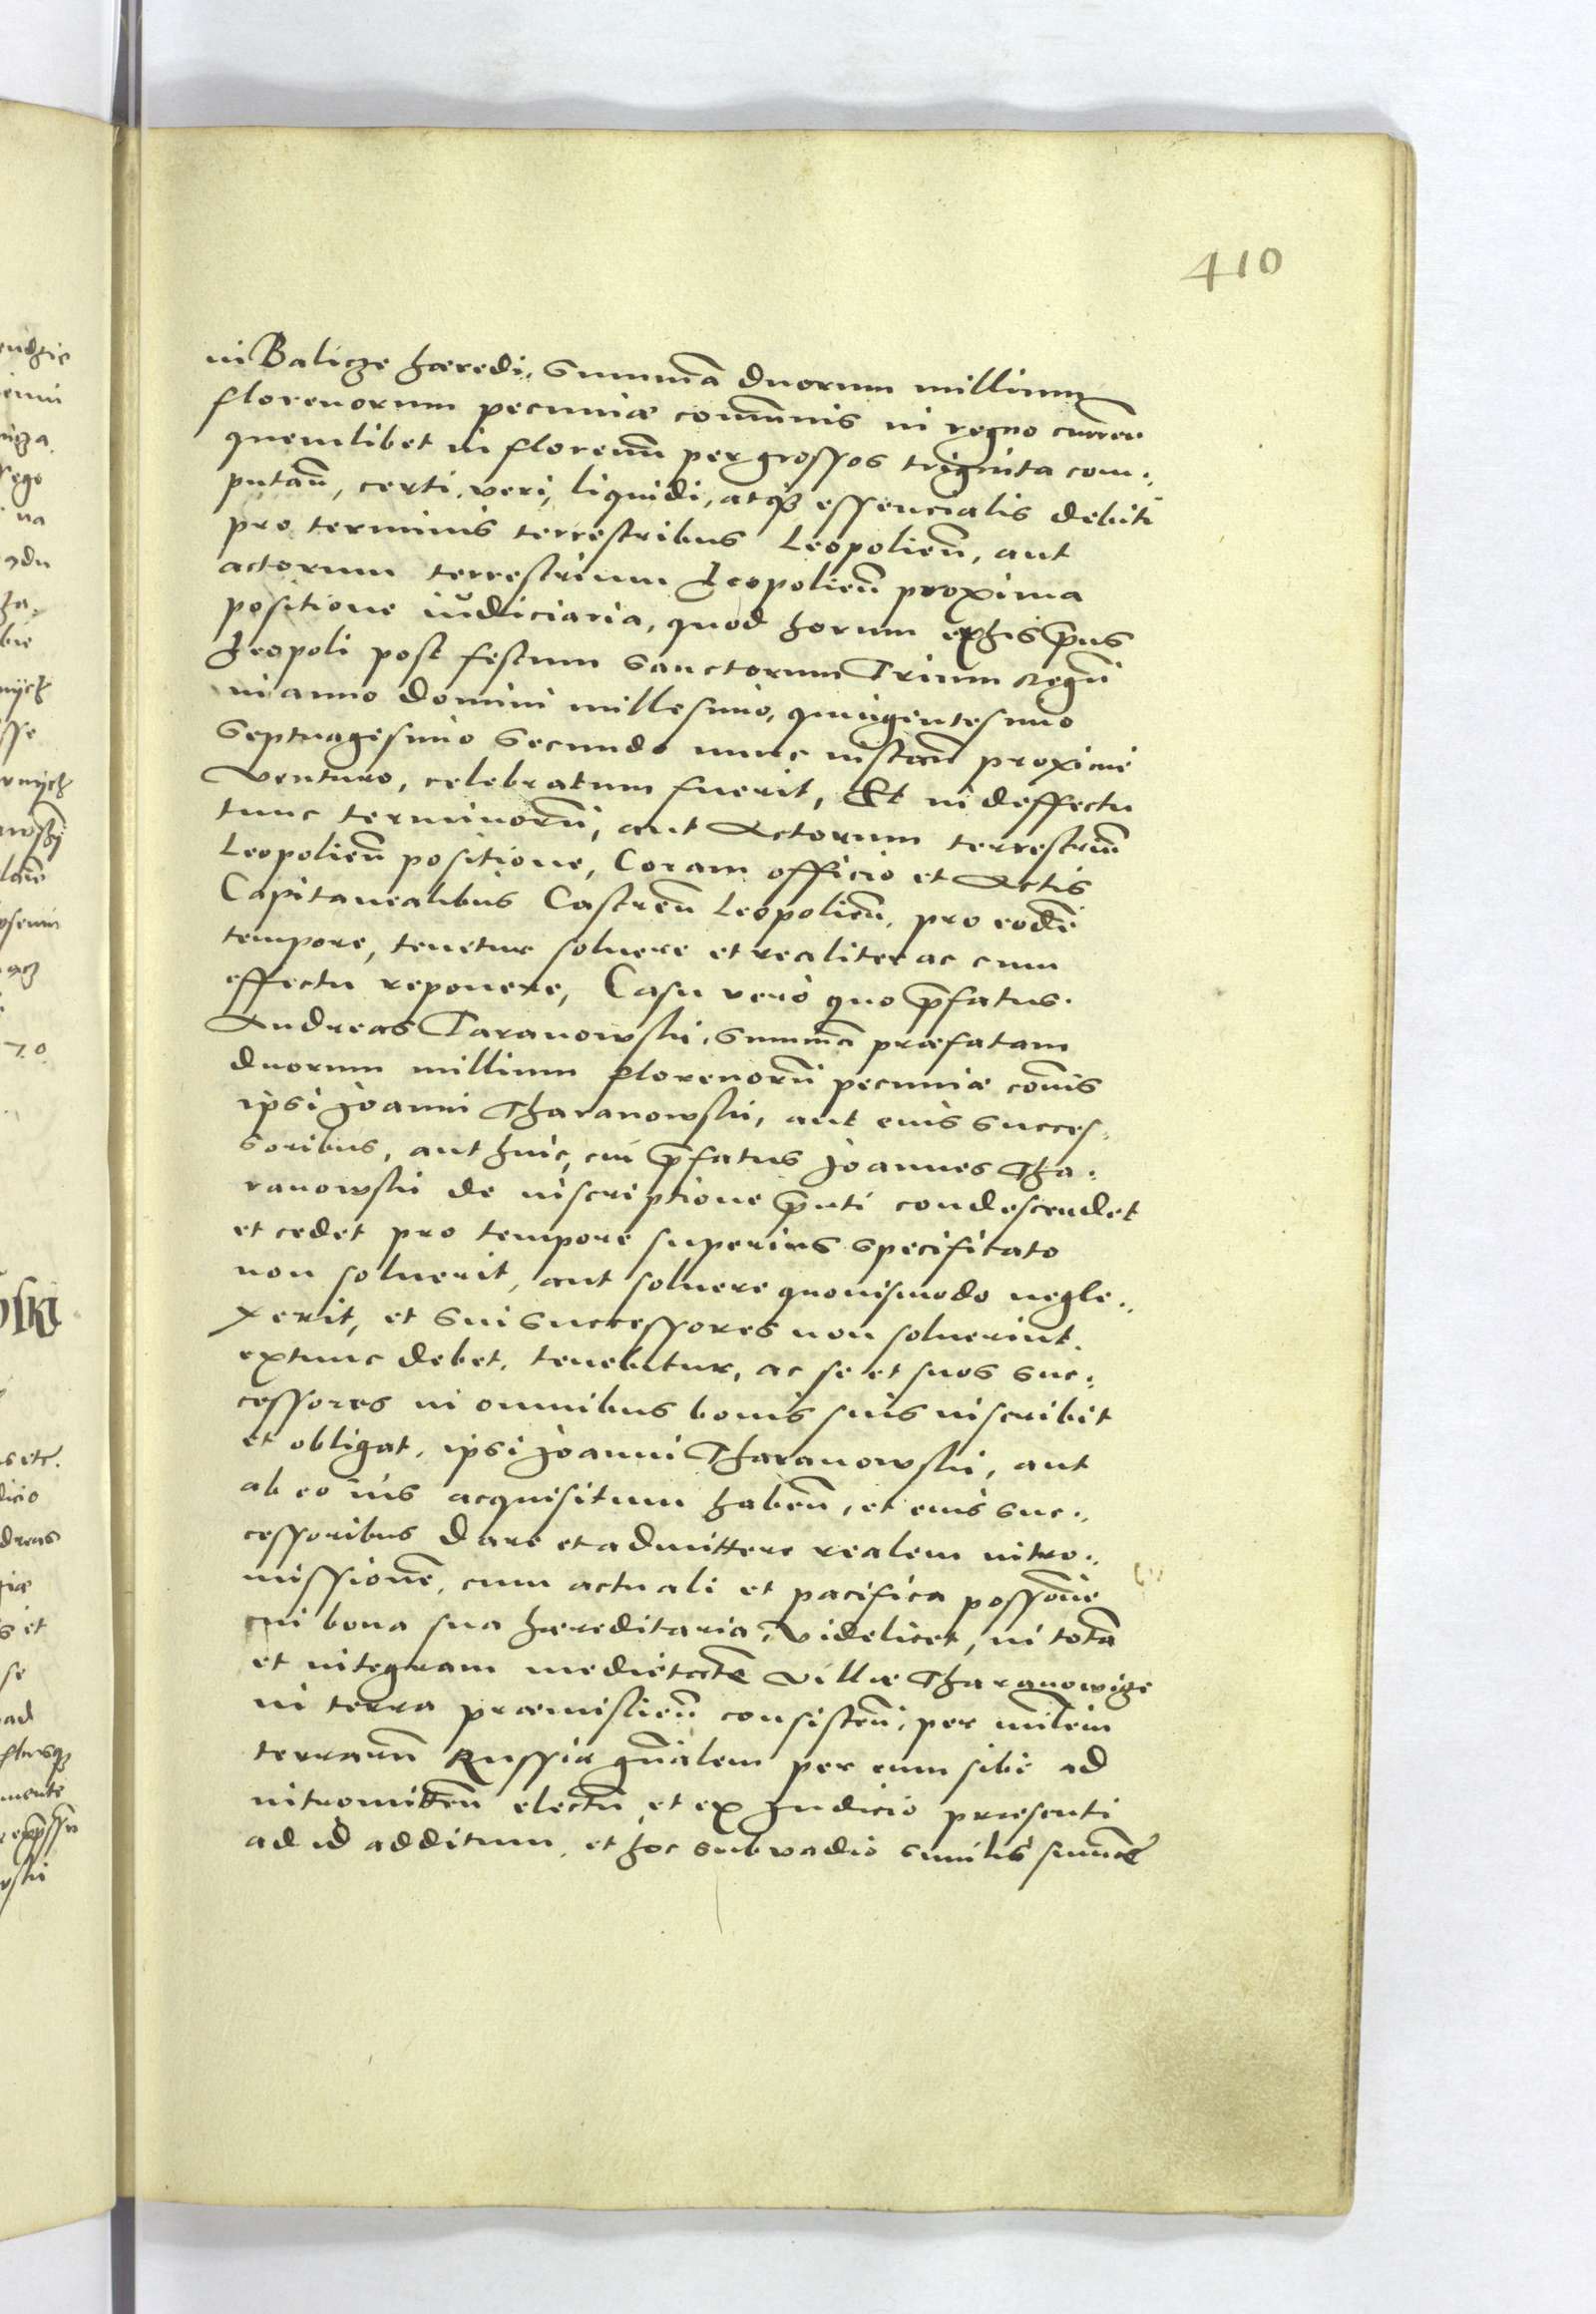 410
in Balicze haeredi, Summā duorum millium
florenorum pecuniae com̄unis in regno curreñ
quemlibet in florenū per grossos triginta com⸗
putañ, certi, veri, liquidi, atq₃ essencialis debiti
pro terminis terrestribus Leopolieñ, aut
actorum terrestrium Leopolieñ proxima
positione iudiciaria, quod horum ex his p̄us
Leopoli post festum Sanctorum Trium Regū
in anno Domini millesimo, quingentesimo
Septuagesimo Secundo nunc instañ proxime
Venturo, celebratum fuerit, Et in deffectu
tunc terminorū, aut Actorum terrestriū
Leopolieñ positione, Coram officio et Actis
Capitanealibus Castreñ Leopolieñ, pro eodē
tempore, tenetur soluere et realiter ac cum
effectu reponere, Casu vero quo p̄fatus
Andreas Taranowski, Summā praefatam
duorum millium florenorū pecuniae com̄is
ipsi Joanni Tharanowski, aut eius succes⸗
soribus, aut huic, cui p̄fatus Joannes Tha⸗
ranowski de inscriptione p̄nti condescendet
et cedet pro tempore superius specificato
non soluerit, aut soluere quouismodo negle⸗
xerit, et sui successores non soluerint.
extunc debet, tenebitur, ac se et suos suc⸗
cessores in omnibus bonis suis inscribit
et obligat, ipsi Joanni Tharanowski, aut
ab eo ius acquisitum habeñ, et eius suc⸗
cessoribus dare et admittere realem intro⸗
missionē, cum actuali et pacifica possōne
in bona sua haereditaria, Videlicet, in totā
et integram medietatē Villae Tharanowize
in terra praemislieñ consisteñ, per m̄lem
terrarū Russiae gn̄alem per eum sibi ad
intromitteñ electū, et ex Judicio praesenti
ad id additum, et hoc sub vadio similis sum̄ae